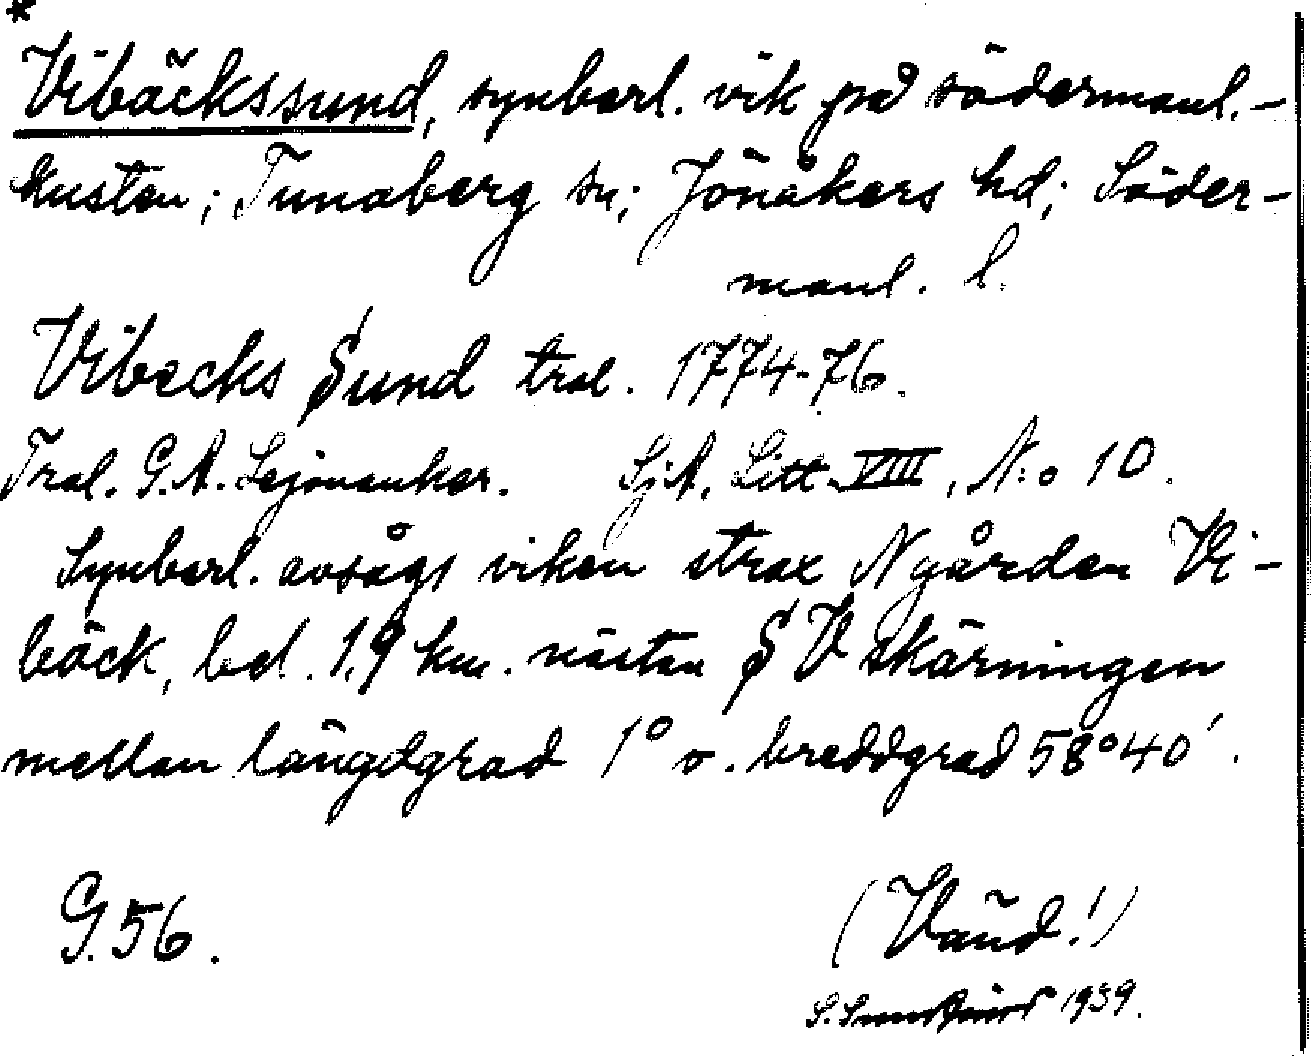 *
Vibäckssund, synbarl. vik på södermanl.-
kusten; Tunaberg sn; Jönåkers hd; Söder-
manl. l.
Vibecks Sund tral. 1774-76.
Tral. G.A. Lejonanker. SjA, Litt. VIII, N:o 10.
Synbarl. avsågs viken strax N gården Vi-
bäck, bel. 1,9 km. nästan SV skärningen
mellan längdgrad 1° o. breddgrad 58°40'.
G.56.
(Vänd!)
S. 1939.